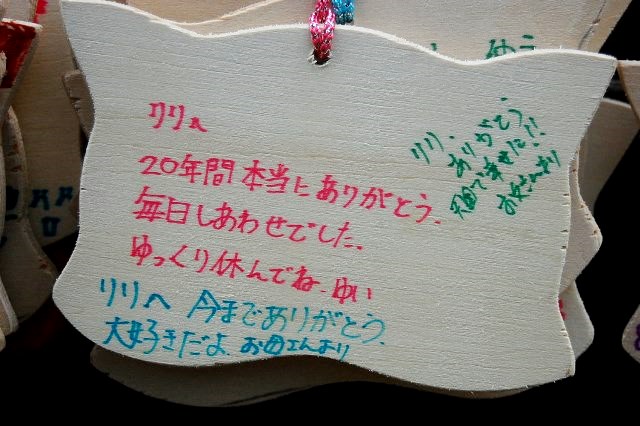 リリへ
20年間 本当にありがとう。
毎日しあわせでした。
ゆっくり休んでね。ゆい
リリへ 今までありがとう。
大好きだよ。お母さんより
リリ、
ありがとう。
天国で幸せに!!
お父さんより